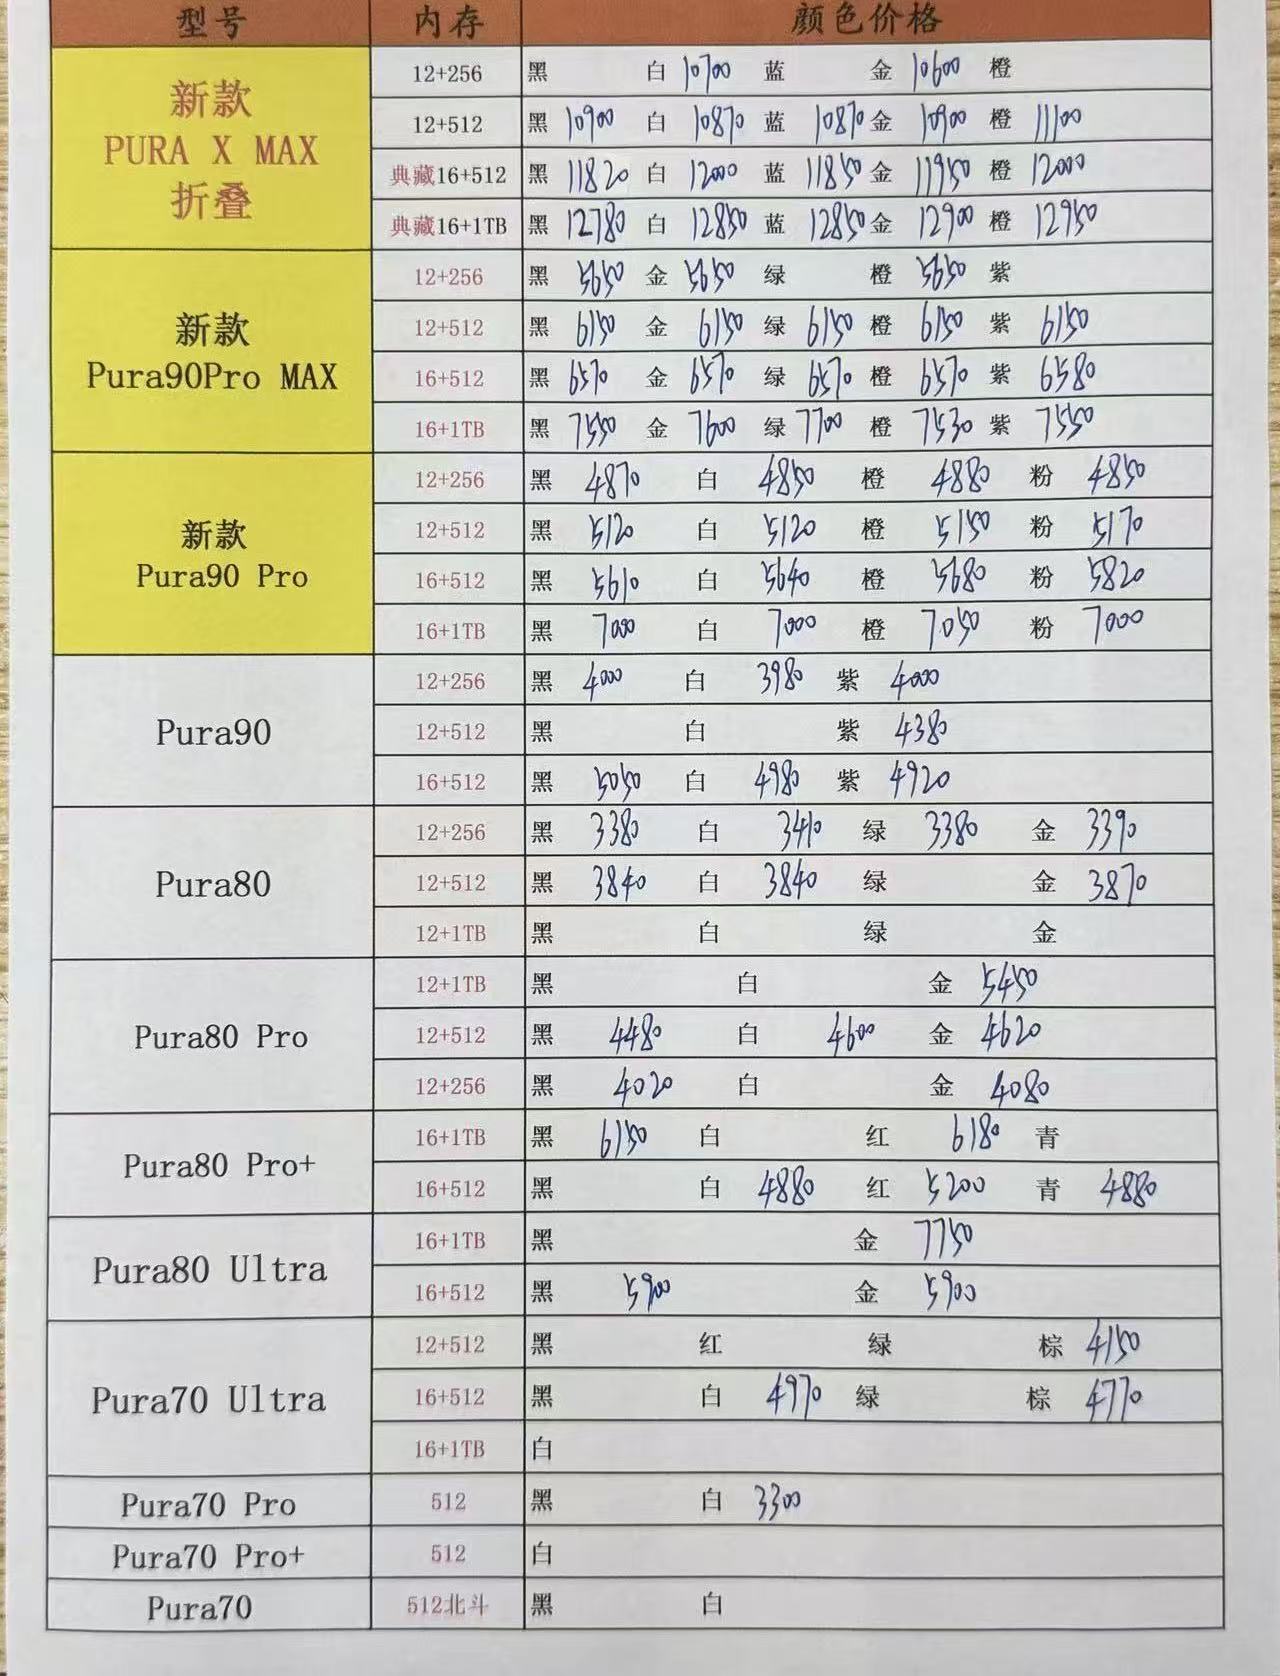 型号 内存 颜色价格
新款 PURA X MAX 折叠
12+256 黑 白 10700 蓝 金 10600 橙
12+512 黑 10900 白 10870 蓝 10870 金 10900 橙 11100
典藏16+512 黑 11820 白 12000 蓝 11850 金 11950 橙 12000
典藏16+1TB 黑 12780 白 12850 蓝 12850 金 12900 橙 12950
新款 Pura90Pro MAX
12+256 黑 5650 金 5650 绿 橙 5650 紫
12+512 黑 6150 金 6150 绿 6150 橙 6150 紫 6150
16+512 黑 6570 金 6570 绿 6570 橙 6570 紫 6580
16+1TB 黑 7550 金 7600 绿 7700 橙 7530 紫 7550
新款 Pura90 Pro
12+256 黑 4870 白 4850 橙 4880 粉 4850
12+512 黑 5120 白 5120 橙 5150 粉 5170
16+512 黑 5610 白 5640 橙 5680 粉 5820
16+1TB 黑 7000 白 7000 橙 7050 粉 7000
Pura90
12+256 黑 4000 白 3980 紫 4000
12+512 黑 白 紫 4380
16+512 黑 5050 白 4980 紫 4920
Pura80
12+256 黑 3380 白 3410 绿 3380 金 3390
12+512 黑 3840 白 3840 绿 金 3870
12+1TB 黑 白 绿 金
Pura80 Pro
12+1TB 黑 白 金 5450
12+512 黑 4480 白 4600 金 4620
12+256 黑 4020 白 金 4080
Pura80 Pro+
16+1TB 黑 6150 白 红 6180 青
16+512 黑 白 4880 红 5200 青 4880
Pura80 Ultra
16+1TB 黑 金 7750
16+512 黑 5900 金 5900
Pura70 Ultra
12+512 黑 红 绿 棕 4150
16+512 黑 白 4970 绿 棕 4770
16+1TB 白
Pura70 Pro 512 黑 白 3300
Pura70 Pro+ 512 白
Pura70 512北斗 黑 白